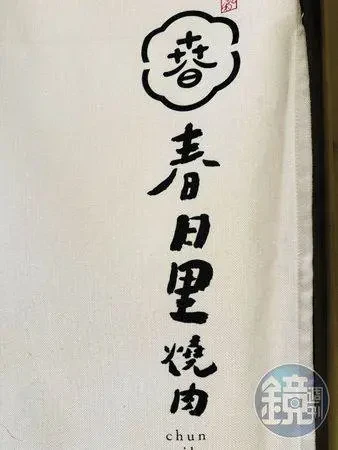 春
春日里燒肉
chun
鏡週刊